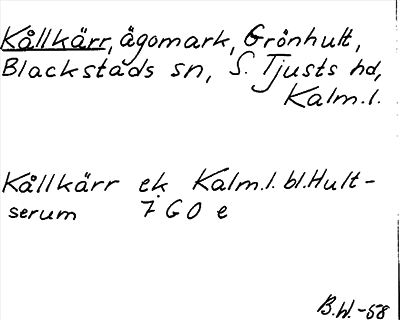 Kållkärr, ägomark, Grönhult,
Blackstads sn, S. Tjusts hd,
Kalm.l.
Kållkärr ek. Kalm.l. bl. Hult-
serum 7 G O e
B.W.-58